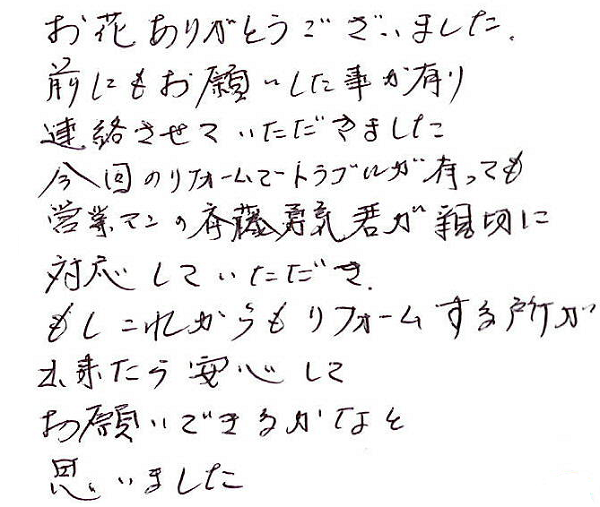 お花ありがとうございました.
前にもお願いした事が有り
連絡させていただきました
今回のリフォームでトラブルが有っても
営業マンの斉藤勇気君が親切に
対応していただき.
もしこれからもリフォームする所が
出来たら安心して
お願いできるかなと
思いました